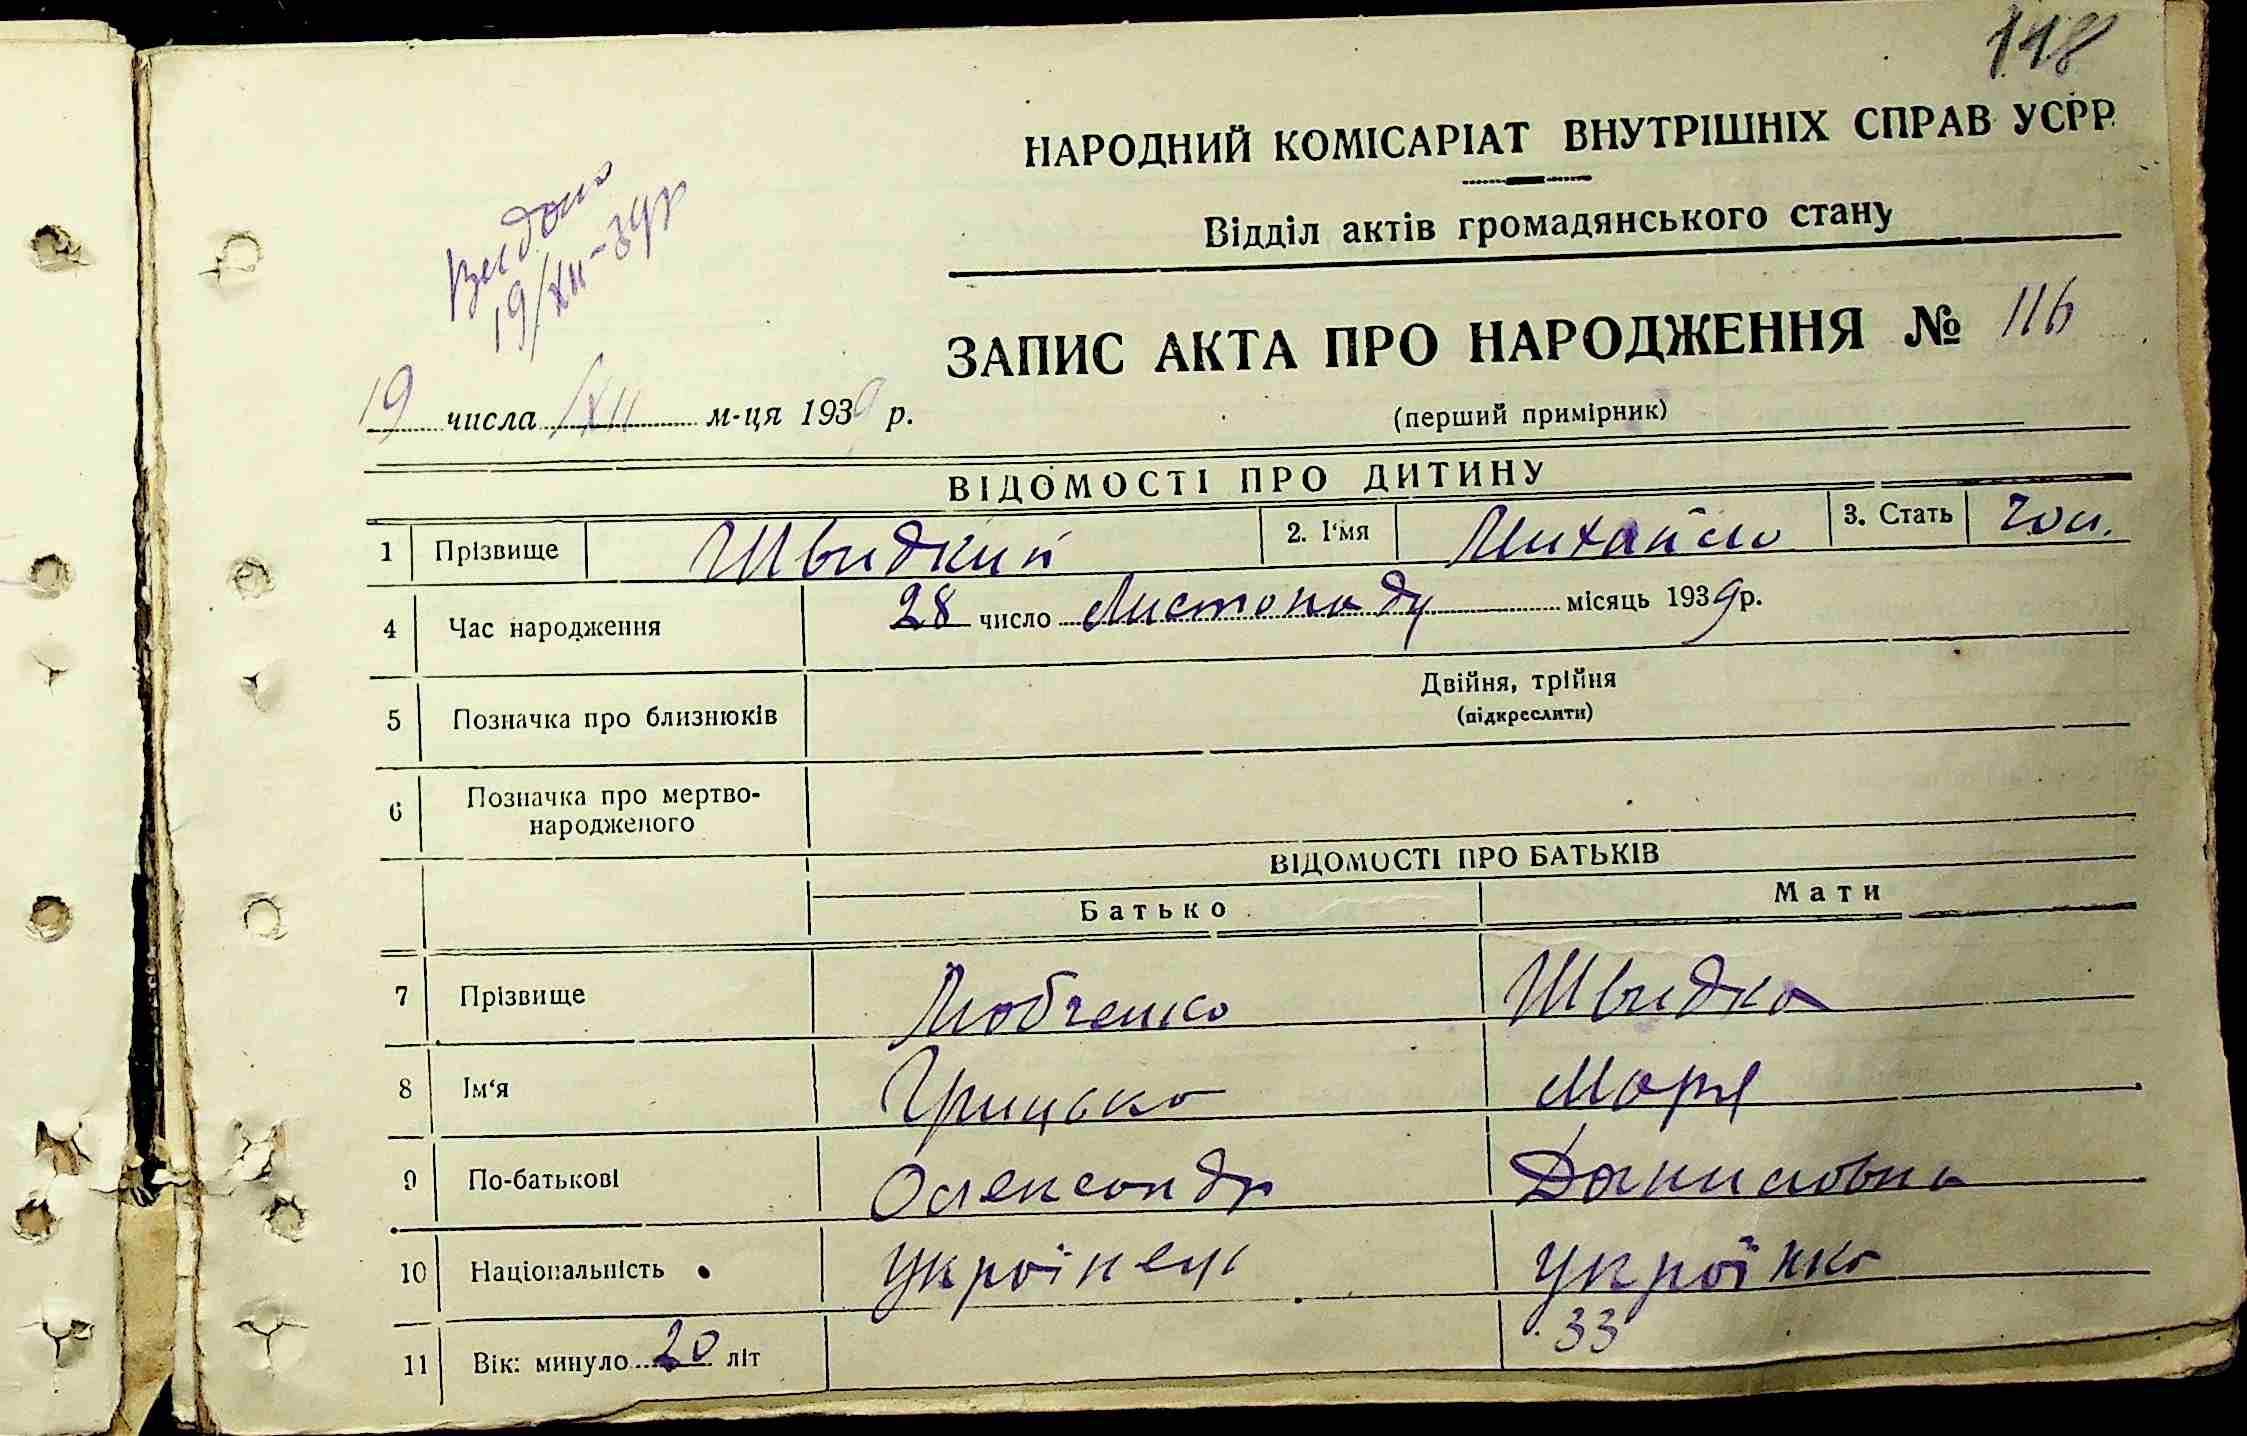 118
НАРОДНИЙ КОМІСАРІАТ ВНУТРІШНІХ СПРАВ УСРР
Відділ актів громадянського стану
Видано
19/XII-39р
ЗАПИС АКТА ПРО НАРОДЖЕННЯ № 116
19 числа /XII м-ця 1939 р.
(перший примірник)
ВІДОМОСТІ ПРО ДИТИНУ
1 Прізвище Швидкий 2. І'мя Михайло 3. Стать чол.
4 Час народження 28 число Листопаду місяць 1939 р.
5 Позначка про близнюків Двійня, трійня
(підкреслити)
6 Позначка про мертво-
народженого
ВІДОМОСТІ ПРО БАТЬКІВ
Батько Мати
7 Прізвище Любченко Швидка
8 Ім'я Грицько Маря
9 По-батькові Олександр Даниловна
10 Національність Украінець Украінка
11 Вік: минуло 20 літ 33